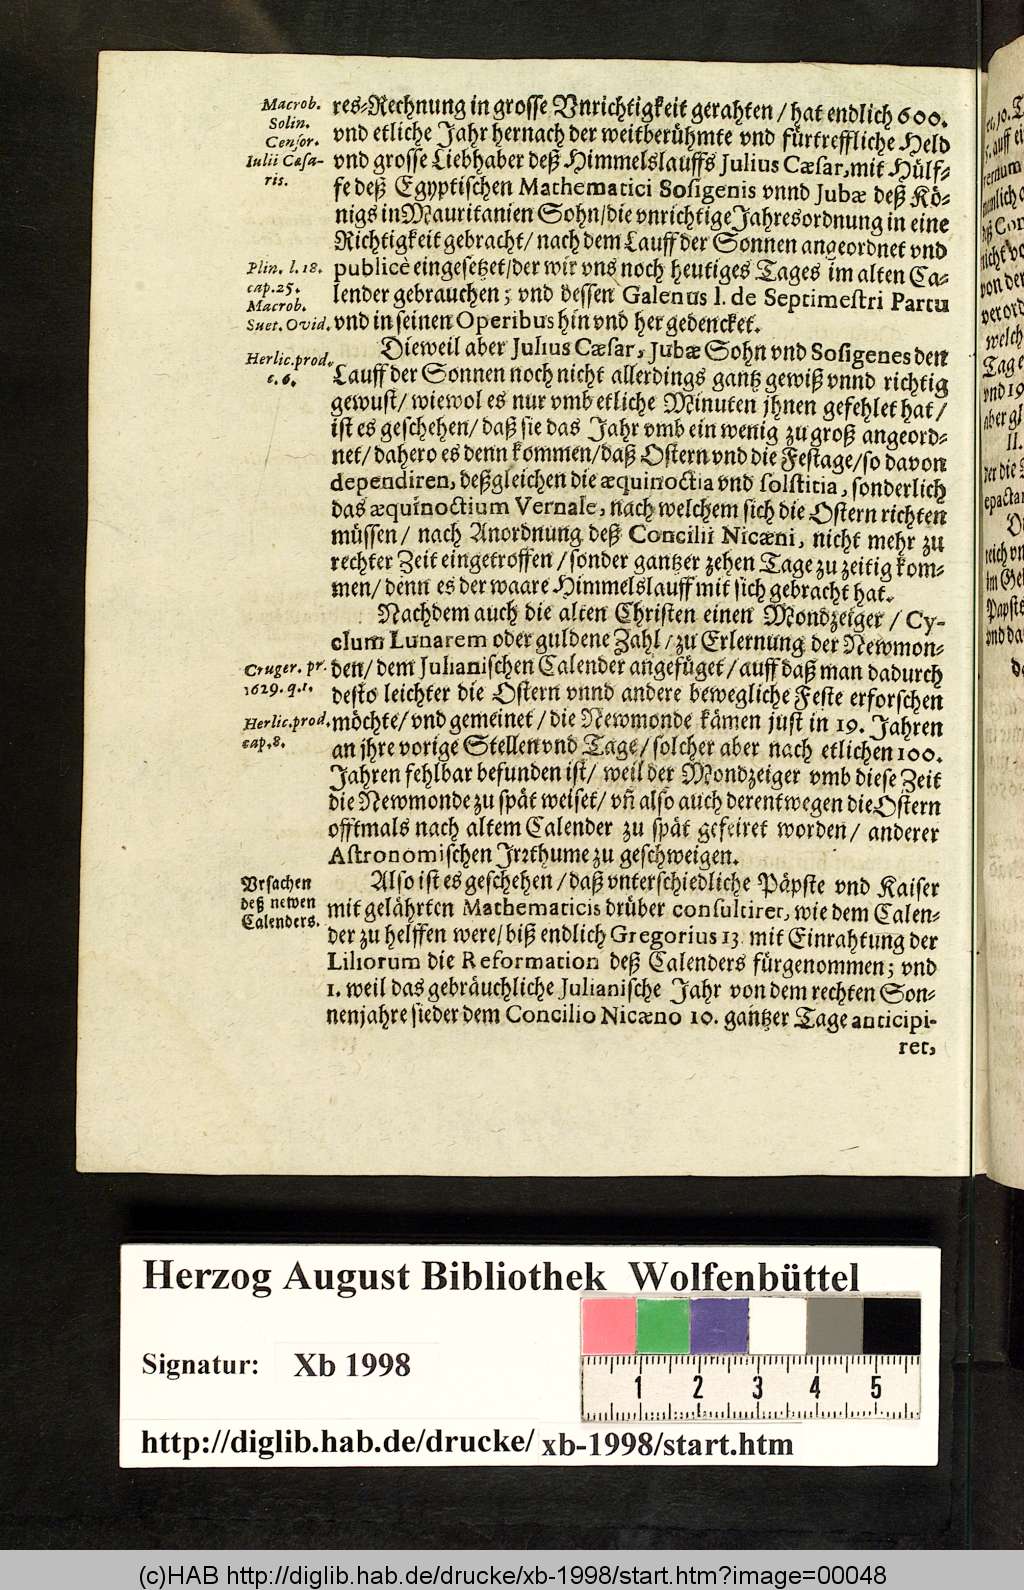 Macrob.
Solin.
Censor.
Iulii Cæsa-
ris.
res-Rechnung in grosse Vnrichtigkeit gerahten / hat endlich 600.
vnd etliche Jahr hernach der weitberühmte vnd fürtreffliche Held
vnd grosse Liebhaber deß Himmelslauffs Julius Cæsar, mit Hülf-
fe deß Egyptischen Mathematici Sosigenis vnnd Jubæ deß Kö-
nigs in Mauritanien Sohn/die vnrichtige Jahresordnung in eine
Richtigkeit gebracht/ nach dem Lauff der Sonnen angeordnet vnd
Plin. l. 18.
cap. 25.
Macrob.
Suet. Ovid.
publicè eingesetzet/der wir vns noch heutiges Tages im alten Ca-
lender gebrauchen; vnd dessen Galenus l. de Septimestri Partu
vnd in seinen Operibus hin vnd her gedencket.
Herlic. prod.
c. 6.
Dieweil aber Julius Cæsar, Jubæ Sohn vnd Sosigenes den
Lauff der Sonnen noch nicht allerdings gantz gewiß vnnd richtig
gewust/ wiewol es nur vmb etliche Minuten jhnen gefehlet hat/
ist es geschehen/ daß sie das Jahr vmb ein wenig zu groß angeord-
net/ dahero es denn kommen/daß Ostern vnd die Festage/so davon
dependiren, deßgleichen die æquinoctia vnd solstitia, sonderlich
das æquinoctium Vernale, nach welchem sich die Ostern richten
müssen/ nach Anordnung deß Concilii Nicæni, nicht mehr zu
rechter Zeit eingetroffen/sonder gantzer zehen Tage zu zeitig kom-
men/ denn es der waare Himmelslauff mit sich gebracht hat.
Nachdem auch die alten Christen einen Mondzeiger / Cy-
clum Lunarem oder guldene Zahl/ zu Erlernung der Newmon-
Cruger. pr.
1629. q. 1.
den/ dem Julianischen Calender angefüget/ auff daß man dadurch
desto leichter die Ostern vnnd andere bewegliche Feste erforschen
Herlic. prod.
cap. 8.
möchte/ vnd gemeinet/ die Newmonde kämen just in 19. Jahren
an jhre vorige Stellen vnd Tage/ solcher aber nach etlichen 100.
Jahren fehlbar befunden ist/ weil der Mondzeiger vmb diese Zeit
die Newmonde zu spät weiset/ vñ also auch derentwegen die Ostern
offtmals nach altem Calender zu spät gefeiret worden/ anderer
Astronomischen Irrthume zu geschweigen.
Vrsachen
deß newen
Calenders.
Also ist es geschehen/ daß vnterschiedliche Päpste vnd Kaiser
mit gelährten Mathematicis drüber consultiret, wie dem Calen-
der zu helffen were/ biß endlich Gregorius 13 mit Einrahtung der
Liliorum die Reformation deß Calenders fürgenommen; vnd
1. weil das gebräuchliche Julianische Jahr von dem rechten Son-
nenjahre sieder dem Concilio Nicæno 10. gantzer Tage anticipi-
ret,
Herzog August Bibliothek Wolfenbüttel
Signatur: Xb 1998
1 2 3 4 5
http://diglib.hab.de/drucke/ xb-1998/start.htm
(c)HAB http://diglib.hab.de/drucke/xb-1998/start.htm?image=00048